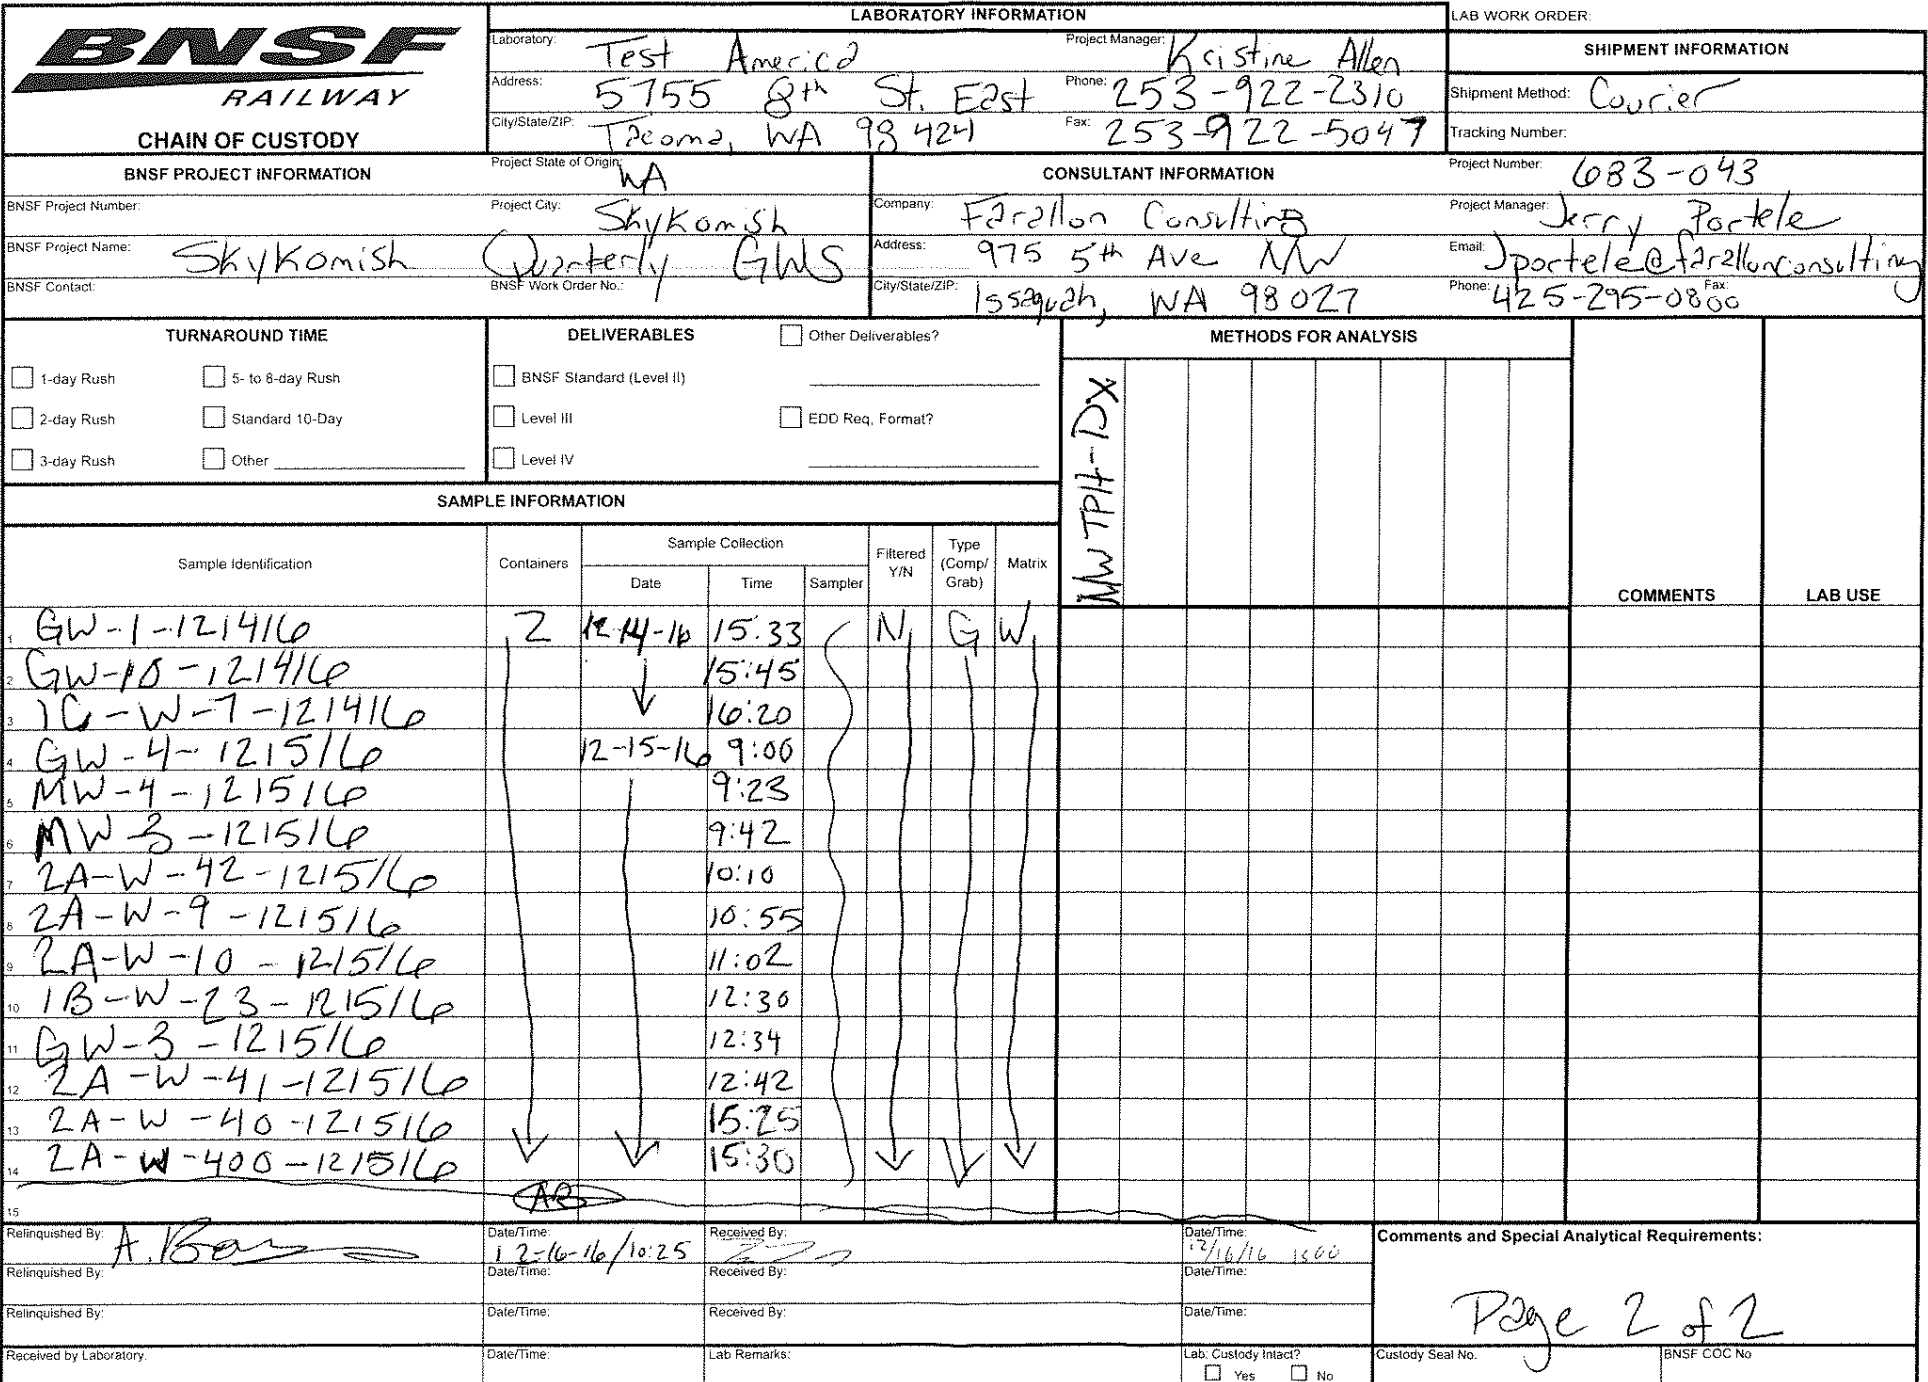 BNSF
RAILWAY
CHAIN OF CUSTODY
LABORATORY INFORMATION
Laboratory: Test America
Project Manager: Kristine Allen
Address: 5755 8th St. East
Phone: 253-922-2310
City/State/ZIP: Tacoma, WA 98424
Fax: 253-922-5047
LAB WORK ORDER:
SHIPMENT INFORMATION
Shipment Method: Courier
Tracking Number:
BNSF PROJECT INFORMATION
Project State of Origin: WA
BNSF Project Number:
Project City: Skykomish
BNSF Project Name: Skykomish Quarterly GWS
BNSF Contact:
BNSF Work Order No.:
CONSULTANT INFORMATION
Project Number: 683-043
Company: Farallon Consulting
Project Manager: Jerry Portele
Address: 975 5th Ave NW
Email: Jportele@farallonconsulting
City/State/ZIP: Issaquah, WA 98027
Phone: 425-295-0800
Fax:
TURNAROUND TIME
1-day Rush
5- to 8-day Rush
2-day Rush
Standard 10-Day
3-day Rush
Other
DELIVERABLES
Other Deliverables?
BNSF Standard (Level II)
Level III
EDD Req, Format?
Level IV
METHODS FOR ANALYSIS
NWTPH-Dx
COMMENTS
LAB USE
SAMPLE INFORMATION
Sample Identification
Containers
Sample Collection
Date Time Sampler
Filtered Y/N
Type (Comp/ Grab)
Matrix
1 GW-1-121416 2 12-14-16 15:33 N G W
2 GW-10-121416 15:45
3 1C-W-7-121416 16:20
4 GW-4-121516 12-15-16 9:00
5 MW-4-121516 9:23
6 MW-3-121516 9:42
7 2A-W-42-121516 10:10
8 2A-W-9-121516 10:55
9 2A-W-10-121516 11:02
10 1B-W-23-121516 12:30
11 GW-3-121516 12:34
12 2A-W-41-121516 12:42
13 2A-W-40-121516 15:25
14 2A-W-400-121516 15:30
15 AB
Relinquished By: A.
Date/Time: 12-16-16/10:25
Received By:
Date/Time: 12/16/16 1300
Comments and Special Analytical Requirements:
Relinquished By:
Date/Time:
Received By:
Date/Time:
Relinquished By:
Date/Time:
Received By:
Date/Time:
Page 2 of 2
Received by Laboratory:
Date/Time:
Lab Remarks:
Lab: Custody Intact?
Yes No
Custody Seal No.
BNSF COC No